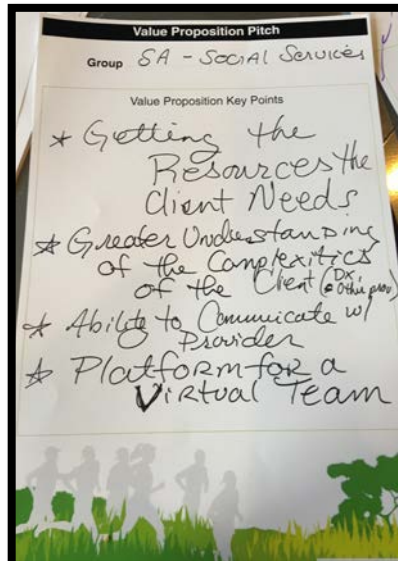 Value Proposition Pitch
Group SA - Social Services
Value Proposition Key Points
* Getting the
Resources the
Client Needs
* Greater Understanding
of the Complexities
of the Client (Dx,
Other prov)
* Ability to Communicate w/
Provider
* Platform for a
Virtual Team